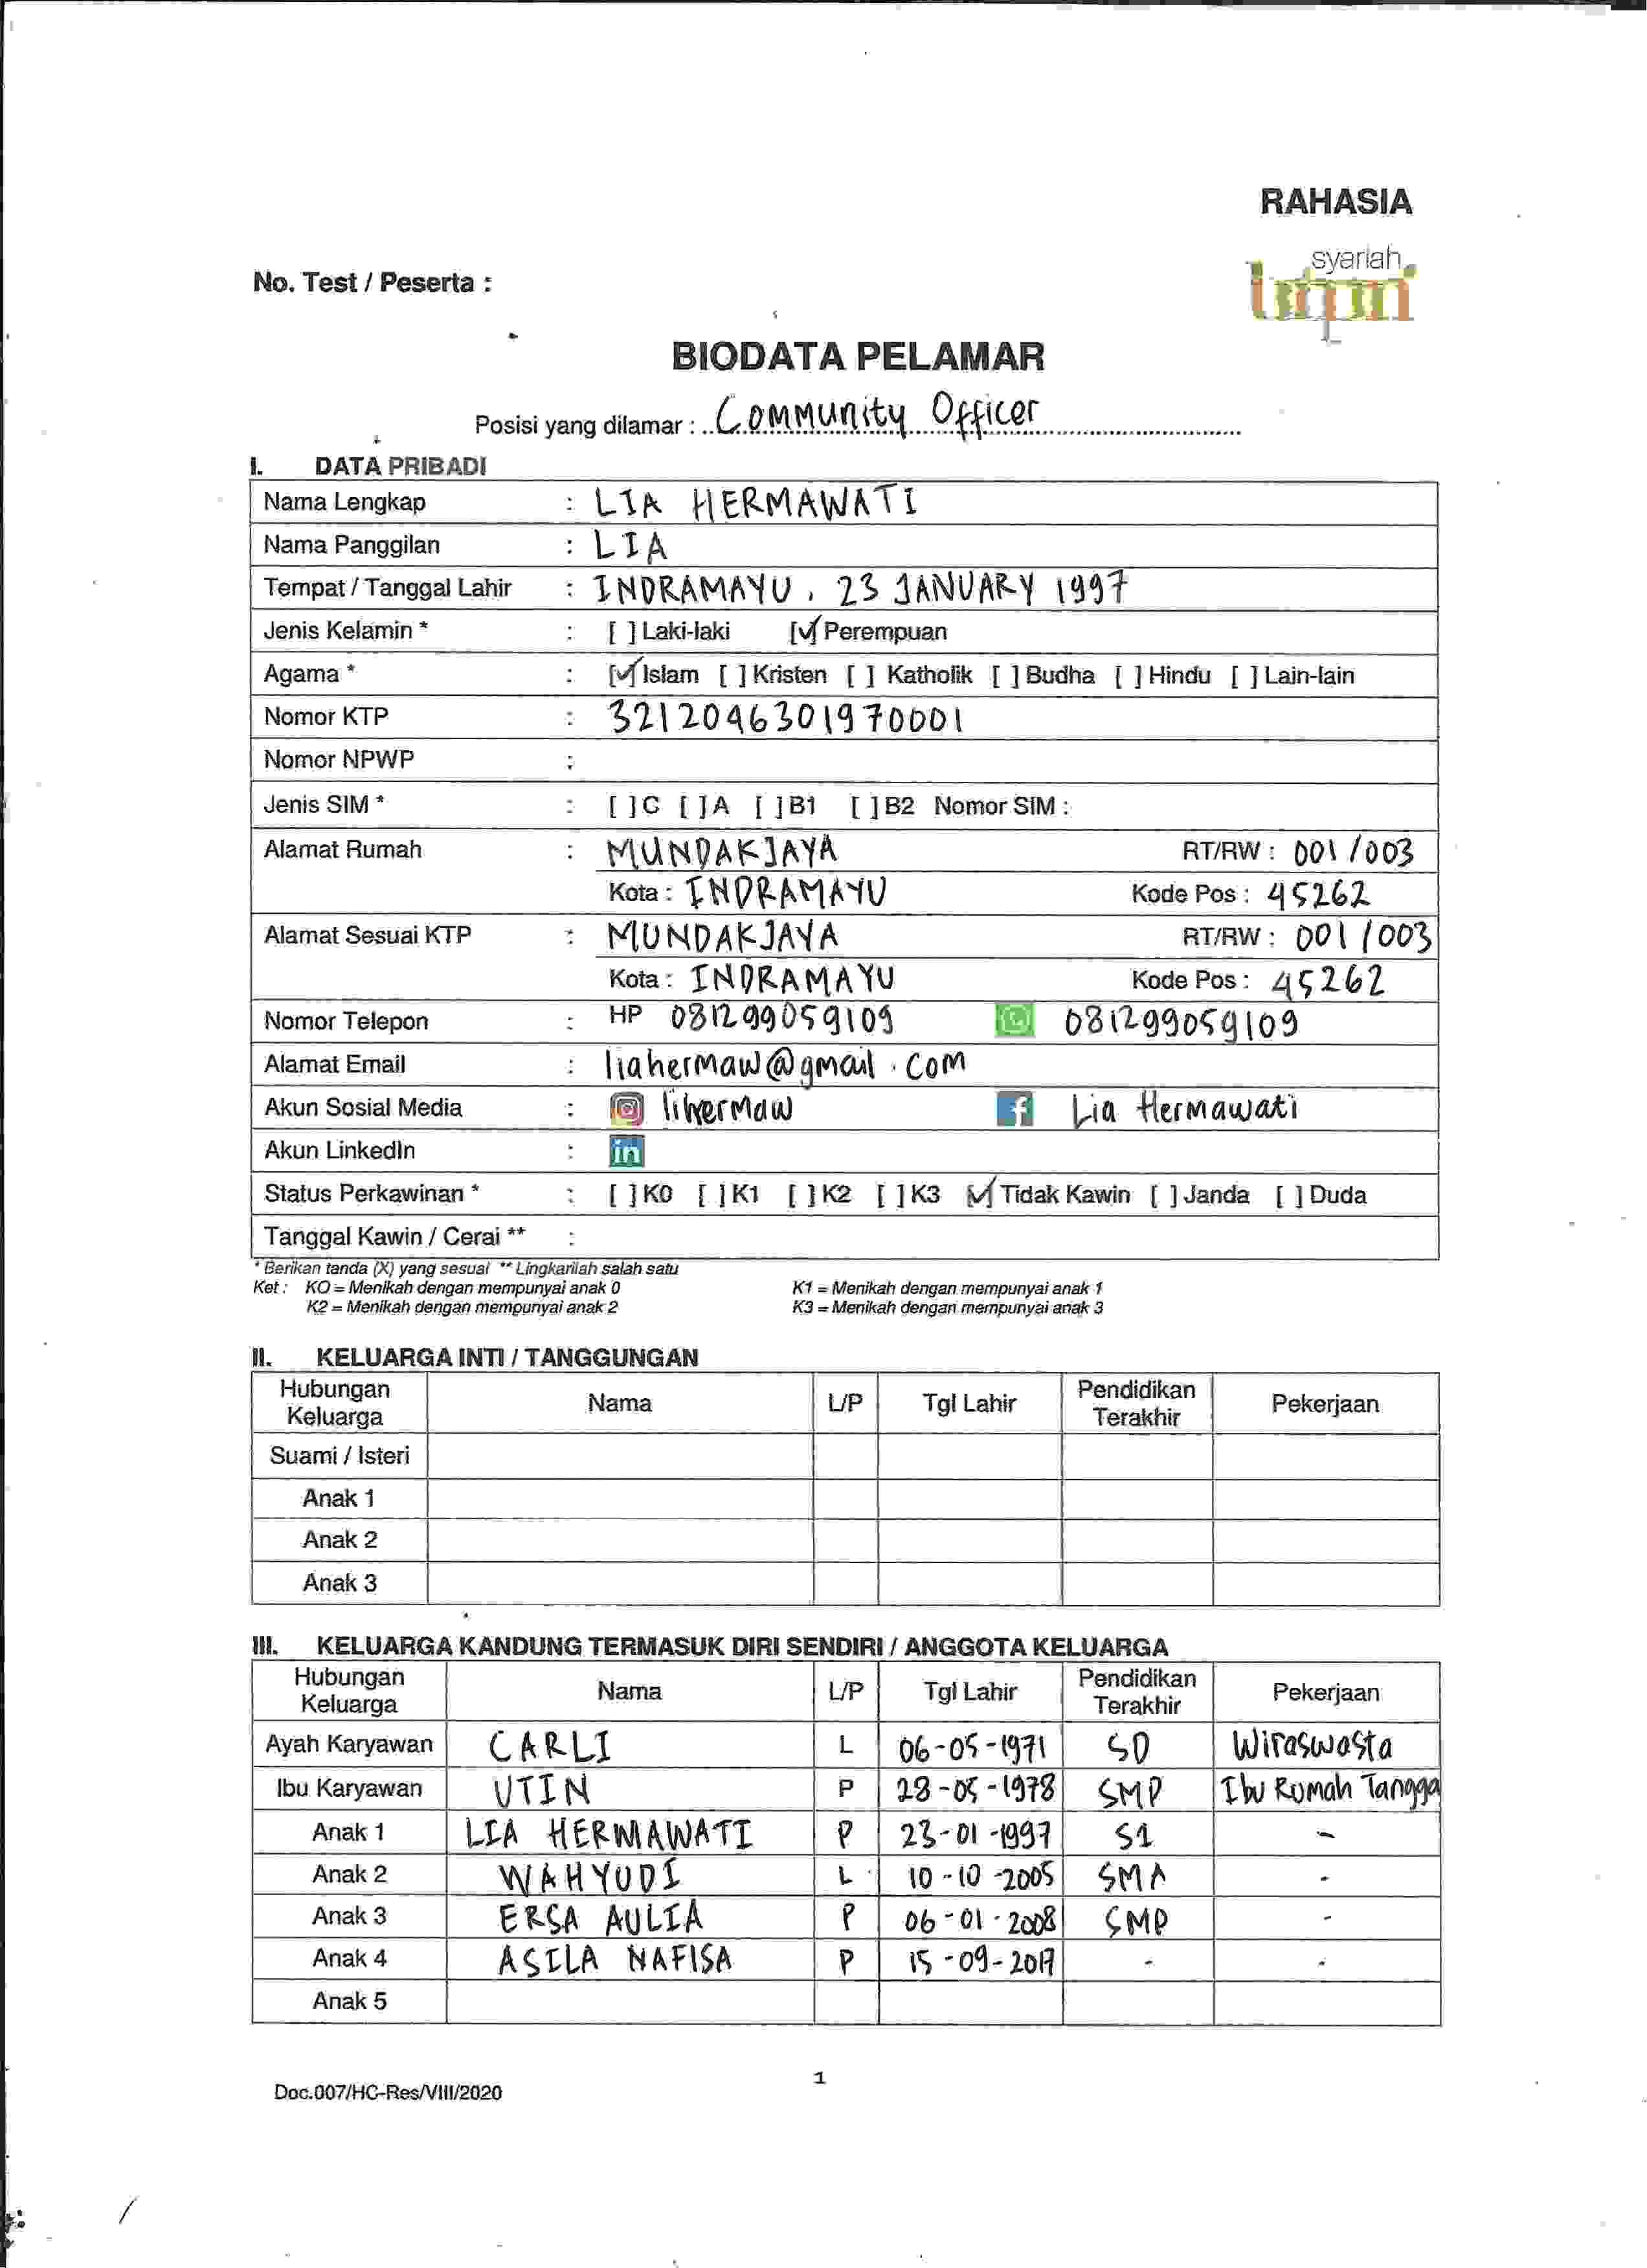 RAHASIA
syariah
btpn
No. Test / Peserta :
BIODATA PELAMAR
Posisi yang dilamar : Community Officer
I. DATA PRIBADI
Nama Lengkap : LIA HERMAWATI
Nama Panggilan : LIA
Tempat / Tanggal Lahir : INDRAMAYU, 23 JANUARY 1997
Jenis Kelamin * : [ ] Laki-laki [✓] Perempuan
Agama * : [✓] Islam [ ] Kristen [ ] Katholik [ ] Budha [ ] Hindu [ ] Lain-lain
Nomor KTP : 3212046301970001
Nomor NPWP :
Jenis SIM * : [ ] C [ ] A [ ] B1 [ ] B2 Nomor SIM :
Alamat Rumah : MUNDAKJAYA RT/RW : 001/003
Kota : INDRAMAYU Kode Pos : 45262
Alamat Sesuai KTP : MUNDAKJAYA RT/RW : 001/003
Kota : INDRAMAYU Kode Pos : 45262
Nomor Telepon : HP 081299059109 081299059109
Alamat Email : liahermaw@gmail.com
Akun Sosial Media : Lia Hermawati
Akun LinkedIn : in
Status Perkawinan * : [ ] K0 [ ] K1 [ ] K2 [ ] K3 [✓] Tidak Kawin [ ] Janda [ ] Duda
Tanggal Kawin / Cerai ** :
* Berikan tanda (X) yang sesuai ** Lingkarilah salah satu
Ket : KO = Menikah dengan mempunyai anak 0 K1 = Menikah dengan mempunyai anak 1
K2 = Menikah dengan mempunyai anak 2 K3 = Menikah dengan mempunyai anak 3
II. KELUARGA INTI / TANGGUNGAN
Hubungan Keluarga Nama L/P Tgl Lahir Pendidikan Terakhir Pekerjaan
Suami / Isteri
Anak 1
Anak 2
Anak 3
III. KELUARGA KANDUNG TERMASUK DIRI SENDIRI / ANGGOTA KELUARGA
Hubungan Keluarga Nama L/P Tgl Lahir Pendidikan Terakhir Pekerjaan
Ayah Karyawan CARLI L 06-05-1971 SD Wiraswasta
Ibu Karyawan UTIN P 28-05-1978 SMP Ibu Rumah Tangga
Anak 1 LIA HERMAWATI P 23-01-1997 S1 -
Anak 2 WAHYUDI L 10-10-2005 SMA -
Anak 3 ERSA AULIA P 06-01-2008 SMP -
Anak 4 ASILA NAFISA P 15-09-2017 - -
Anak 5
1
Doc.007/HC-Res/VIII/2020